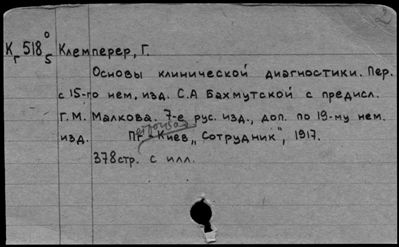 2
К г 518 0/5 Клемперер, Г.
Основы клинической диагностики. Пер.
с 15-го нем. изд. С.А Бахмутской с предисл.
Г.М. Малкова. 7-е рус. изд., доп. по 19-му нем.
изд. Пг - Киев „Сотрудник", 1917.
378стр. с илл.